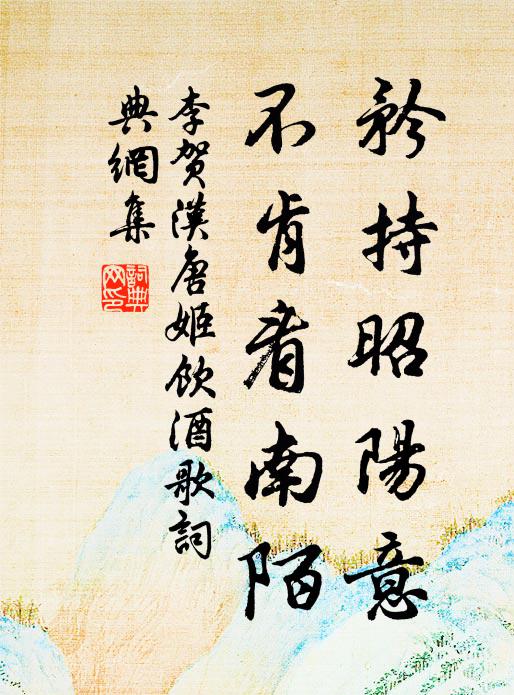 矜持昭陽意
不肯看南陌
李賀漢唐姬飲酒歌詞
典網集
詞典網印